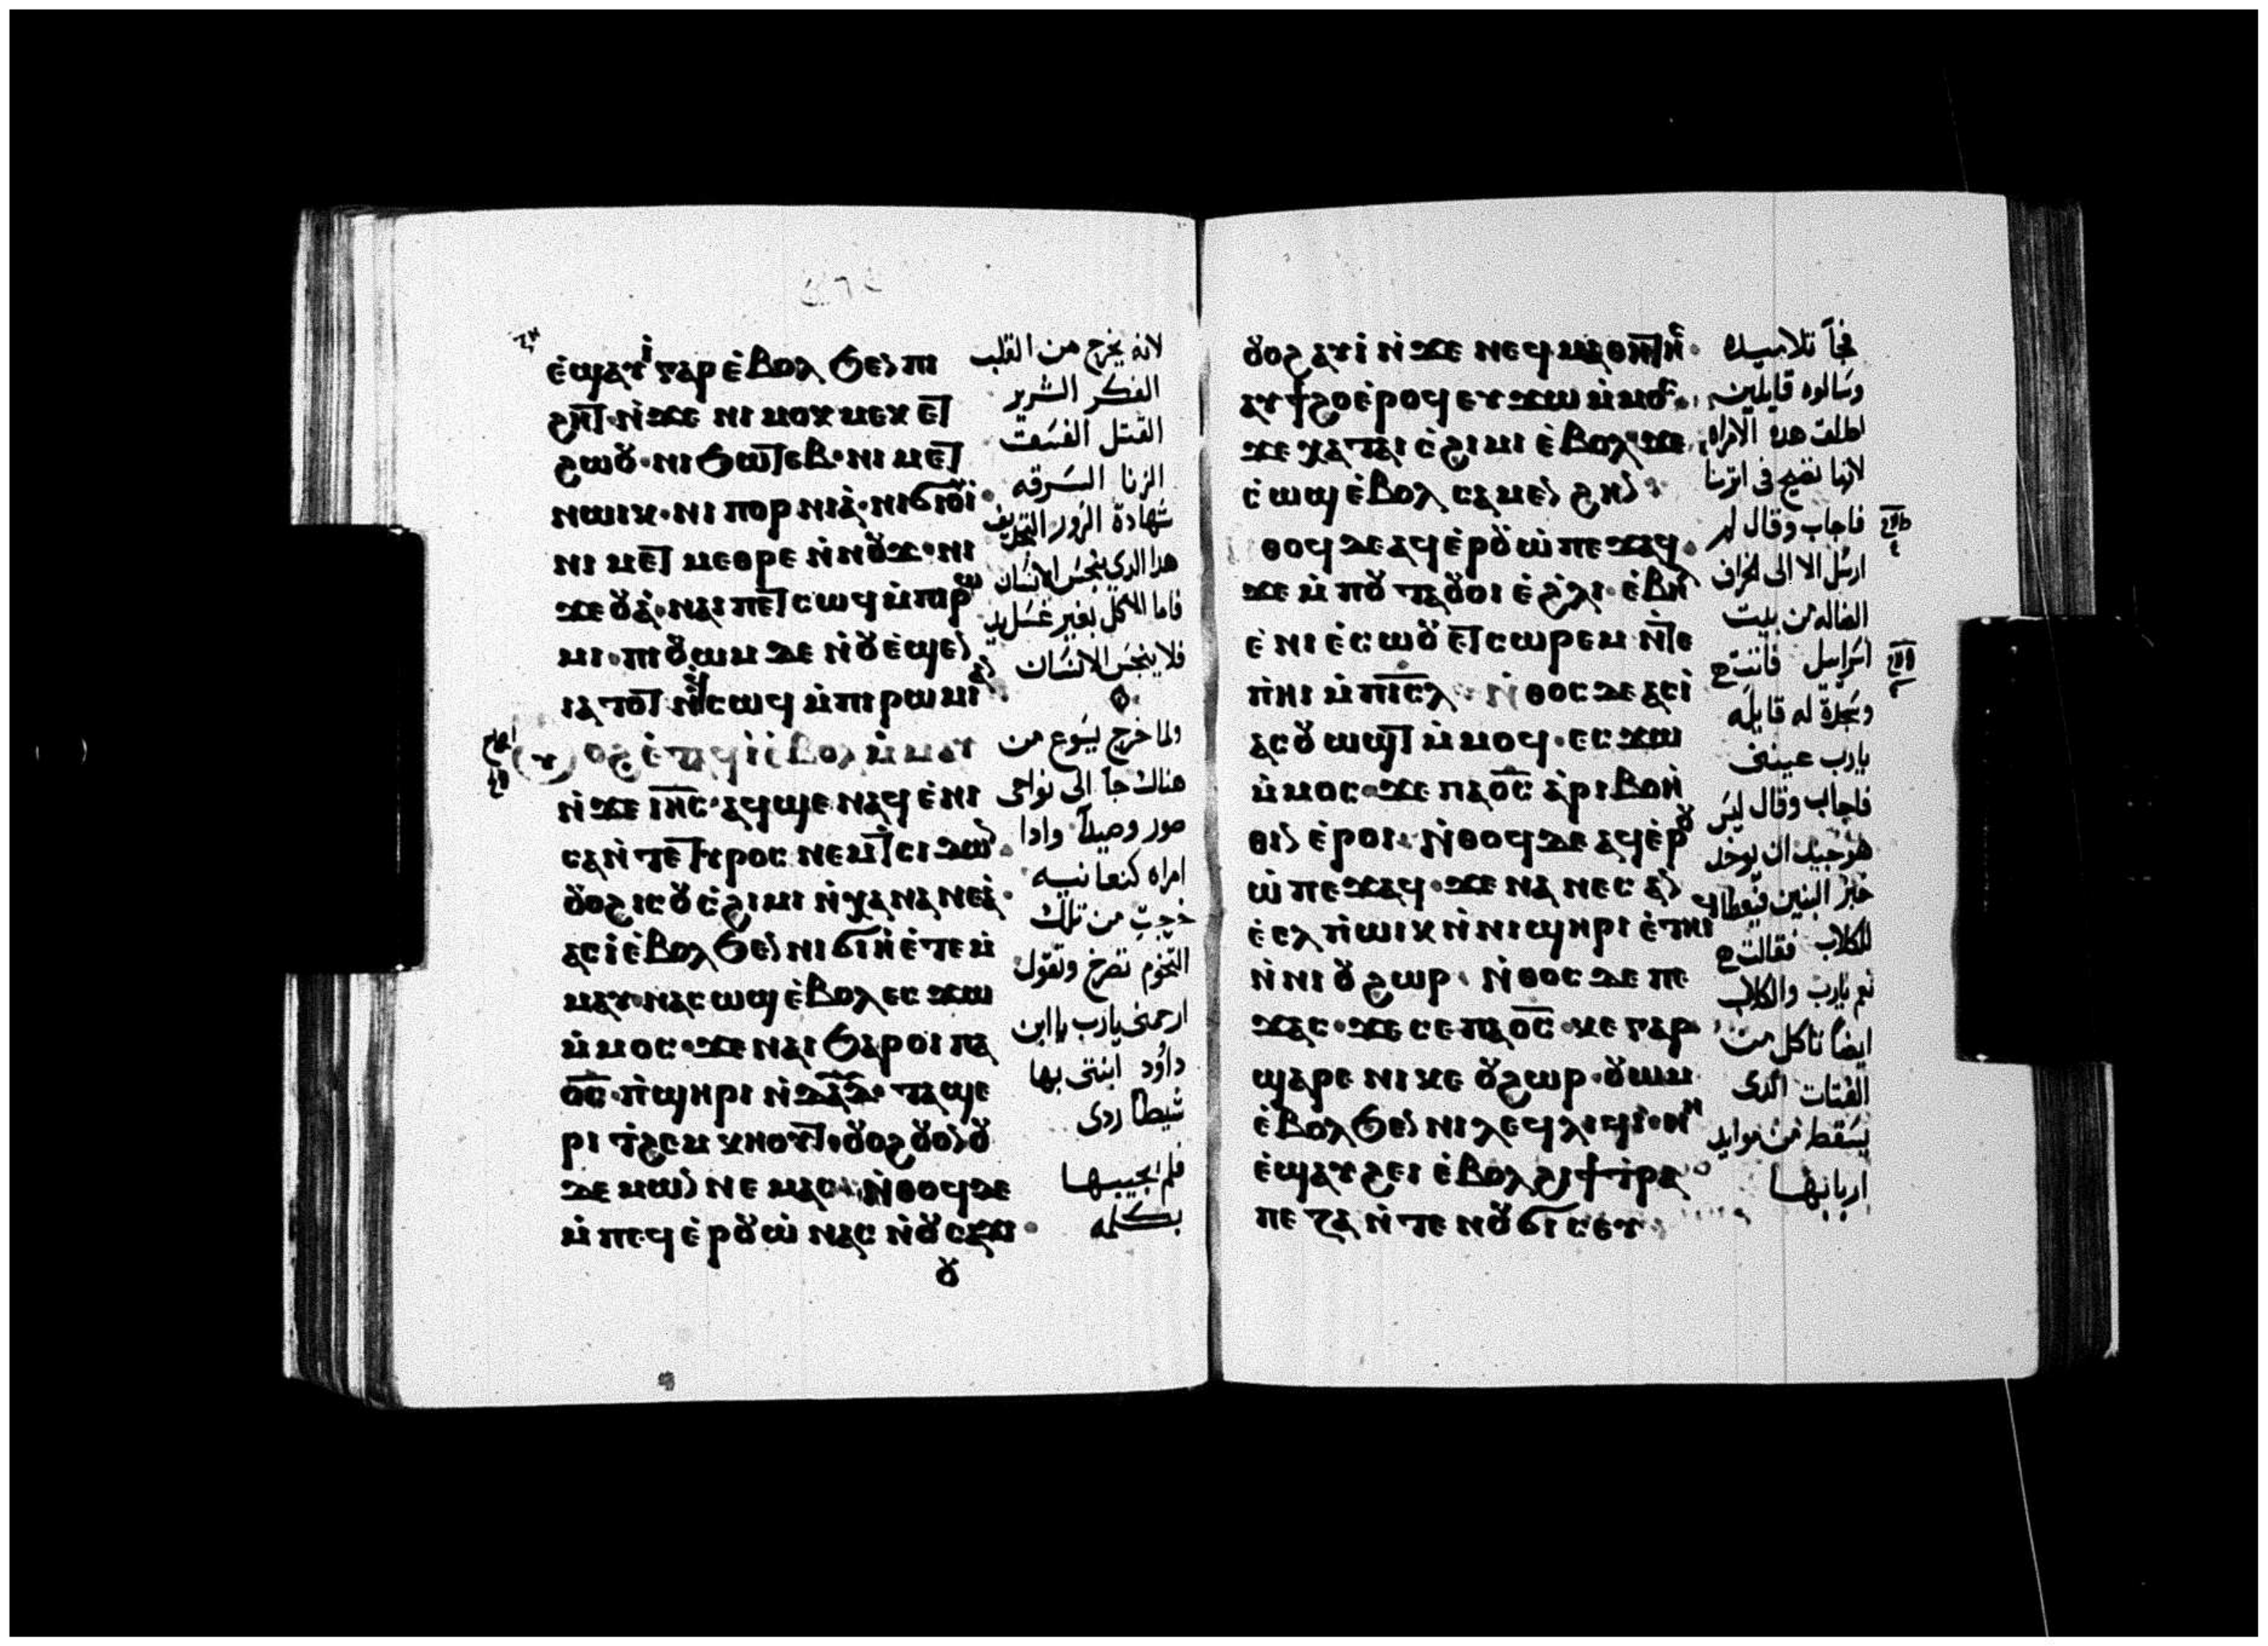 ⲉ̀ϣⲁⲩⲓ̀ ⲅⲁⲣ ⲉ̀ⲃⲟⲗ ϧⲉⲛ ⲡⲓ
ϩⲏⲧ · ⲛ̀ϫⲉ ⲛⲓ ⲙⲟⲕⲙⲉⲕ ⲉⲧ
ϩⲱⲟⲩ · ⲛⲓ ϧⲱⲧⲉⲃ · ⲛⲓ ⲙⲉⲧ
ⲛⲱⲓⲕ · ⲛⲓ ⲡⲟⲣⲛⲓⲁ̀ · ⲛⲓ ϭⲓⲟⲩⲓ̀ ·
ⲛⲓ ⲙⲉⲧ ⲙⲉⲑⲣⲉ ⲛ̀ⲛⲟⲩϫ · ⲛⲓ
ϫⲉⲟⲩⲁ̀ · ⲛⲁⲓ ⲡⲉⲧ ⲥⲱϥ ⲙ̀ⲡⲓⲣⲱ
ⲙⲓ · ⲡⲓⲟⲩⲱⲙ ⲇⲉ ⲛ̀ⲟⲩⲉϣⲉⲛ
ⲓⲁ ⲧⲟⲧ ⲛ̀ϥⲥⲱϥ ⲙ̀ⲡⲓⲣⲱⲙⲓ ⲁⲛ
ⲟⲩⲟϩ ⲉ̀ⲧⲁϥⲓ̀ ⲉ̀ⲃⲟⲗ ⲙ̀ⲙⲁⲩ
ⲛ̀ϫⲉ ⲓⲏⲥ · ⲁϥϣⲉ ⲛⲁϥ ⲉ̀ⲛⲓ
ⲥⲁ ⲛ̀ⲧⲉ ⲧⲩⲣⲟⲥ ⲛⲉⲙ ⲧⲥⲓⲇⲱⲛ ·
ⲟⲩⲟϩ ⲓⲥ ⲟⲩⲥ̀ϩⲓⲙⲓ ⲛ̀ⲭⲁⲛⲁⲛⲉⲁ̀ ·
ⲁⲥⲓ̀ ⲉ̀ⲃⲟⲗ ϧⲉⲛ ⲛⲓ ϭⲓⲏ ⲉ̀ⲧⲉ ⲙ̀
ⲙⲁⲩ · ⲛⲁⲥⲱϣ ⲉ̀ⲃⲟⲗ ⲉⲥϫⲱ
ⲙ̀ⲙⲟⲥ · ϫⲉ ⲛⲁⲓ ϧⲁⲣⲟⲓ ⲡⲁ
ⲟ̅ⲥ̅ · ⲡ̀ϣⲏⲣⲓ ⲛ̀ⲇⲁⲇ · ⲧⲁϣⲉ
ⲣⲓ ⲧ̀ϩⲉⲙⲕⲏⲟⲩⲧ · ⲟⲩⲟϩ ⲟⲩⲟⲛ ⲟⲩ
ⲇⲉⲙⲱⲛ ⲛⲉⲙⲁⲥ · ⲛ̀ⲑⲟϥ ⲇⲉ
ⲙ̀ⲡⲉϥⲉ̀ⲣⲟⲩⲱ̀ ⲛⲁⲥ ⲛ̀ⲟⲩⲥⲁϫⲓ ·
لانه يخرج من القلب
الفكر الشرير
القتل الفسَق
الزنا السَرقه
شهادة الزور
هدا الدى ينجسَ الانسَان
فاما الاكل بغير غسَل يد
فلا ينجسَ الانسَان
ولما خرج يسَوع من
هناك جا الى نواحى
صور وصيدا وادا
امراه كنعانيه
خرجت من تلك
التخوم تصرخ وتقول
ارحمنى يارب يا ابن
داود ابنتى بها
شيطان ردى
فلم يجيبها
بكلمه
ⲟⲩⲟϩ ⲁⲩⲓ̀ ⲛ̀ϫⲉ ⲛⲉϥⲙⲁⲑⲏⲧⲏⲥ ·
ⲁⲩϯϩⲟ ⲉ̀ⲣⲟϥ ⲉⲩϫⲱ ⲙ̀ⲙⲟⲥ ·
ϫⲉ ⲭⲁ ⲧⲁⲓ ⲥ̀ϩⲓⲙⲓ ⲉ̀ⲃⲟⲗ · ϫⲉ
ⲥ̀ⲱϣ ⲉ̀ⲃⲟⲗ ⲥⲁⲙⲉⲛϩⲏⲛ
ⲑⲟϥ ⲇⲉ ⲁϥⲉ̀ⲣⲟⲩⲱ̀ ⲡⲉϫⲁϥ ·
ϫⲉ ⲙ̀ⲡⲟⲩⲧⲁⲟⲩⲟⲓ ⲉ̀ϩ̀ⲗⲓ · ⲉ̀ⲃⲏⲗ
ⲉ̀ ⲛⲓ ⲉ̀ⲥⲱⲟⲩ ⲉⲧⲥⲱⲣⲉⲙ ⲛ̀ⲧⲉ
ⲡ̀ⲏⲓ ⲙ̀ⲡⲓⲥⲗ · ⲛ̀ⲑⲟⲥ ⲇⲉ ⲁⲥⲓ̀
ⲁⲥⲟⲩⲱϣⲧ ⲙ̀ⲙⲟϥ · ⲉⲥϫⲱ
ⲙ̀ⲙⲟⲥ · ϫⲉ ⲡⲁⲟ̅ⲥ̅ ⲁ̀ⲣⲓⲃⲟⲏ̀
ⲑⲓⲛ ⲉ̀ⲣⲟⲓ · ⲛ̀ⲑⲟϥ ⲇⲉ ⲁϥⲉ̀ⲣⲟⲩ
ⲱ̀ ⲡⲉϫⲁϥ · ϫⲉ ⲛⲁⲛⲉⲥ ⲁⲛ
ⲉ̀ⲉⲗ ⲡ̀ⲱⲓⲕ ⲛ̀ⲛⲓϣⲏⲣⲓ ⲉ̀ⲧⲏⲓϥ
ⲛ̀ⲛⲓⲟⲩϩⲱⲣ · ⲛ̀ⲑⲟⲥ ⲇⲉ ⲡⲉ
ϫⲁⲥ · ϫⲉ ⲥⲉ ⲡⲁⲟ̅ⲥ̅ · ⲕⲉ ⲅⲁⲣ
ϣⲁⲣⲉ ⲛⲓⲕⲉ ⲟⲩϩⲱⲣ · ⲟⲩⲱⲙ
ⲉ̀ⲃⲟⲗ ϧⲉⲛ ⲛⲓ ⲗⲉϥⲗⲓϥⲓ · ⲛⲏ
ⲉ̀ϣⲁⲩϩⲉⲓ ⲉ̀ⲃⲟⲗ ϩⲓ ϯⲧⲣⲁ
ⲡⲉⲍⲁ ⲛ̀ⲧⲉ ⲛⲟⲩϭⲓⲥⲉⲩ
فجا تلاميده
وسَالوه قايلين
اطلق هده الامراه
لانها تصيح فى اثرنا
فاجاب وقال لم
ارسَل الا الى الخراف
الضاله من بيت
اسَراييل فاتت
وسَجدة له قايله
يارب عينى
فاجاب وقال ليسَ
هو جيد ان يوخد
خبز البنين فيعطا
للكلاب فقالت
نعم يارب والكلاب
ايضا تاكل من
الفتات الدى
يسَقط من موايد
اربابها